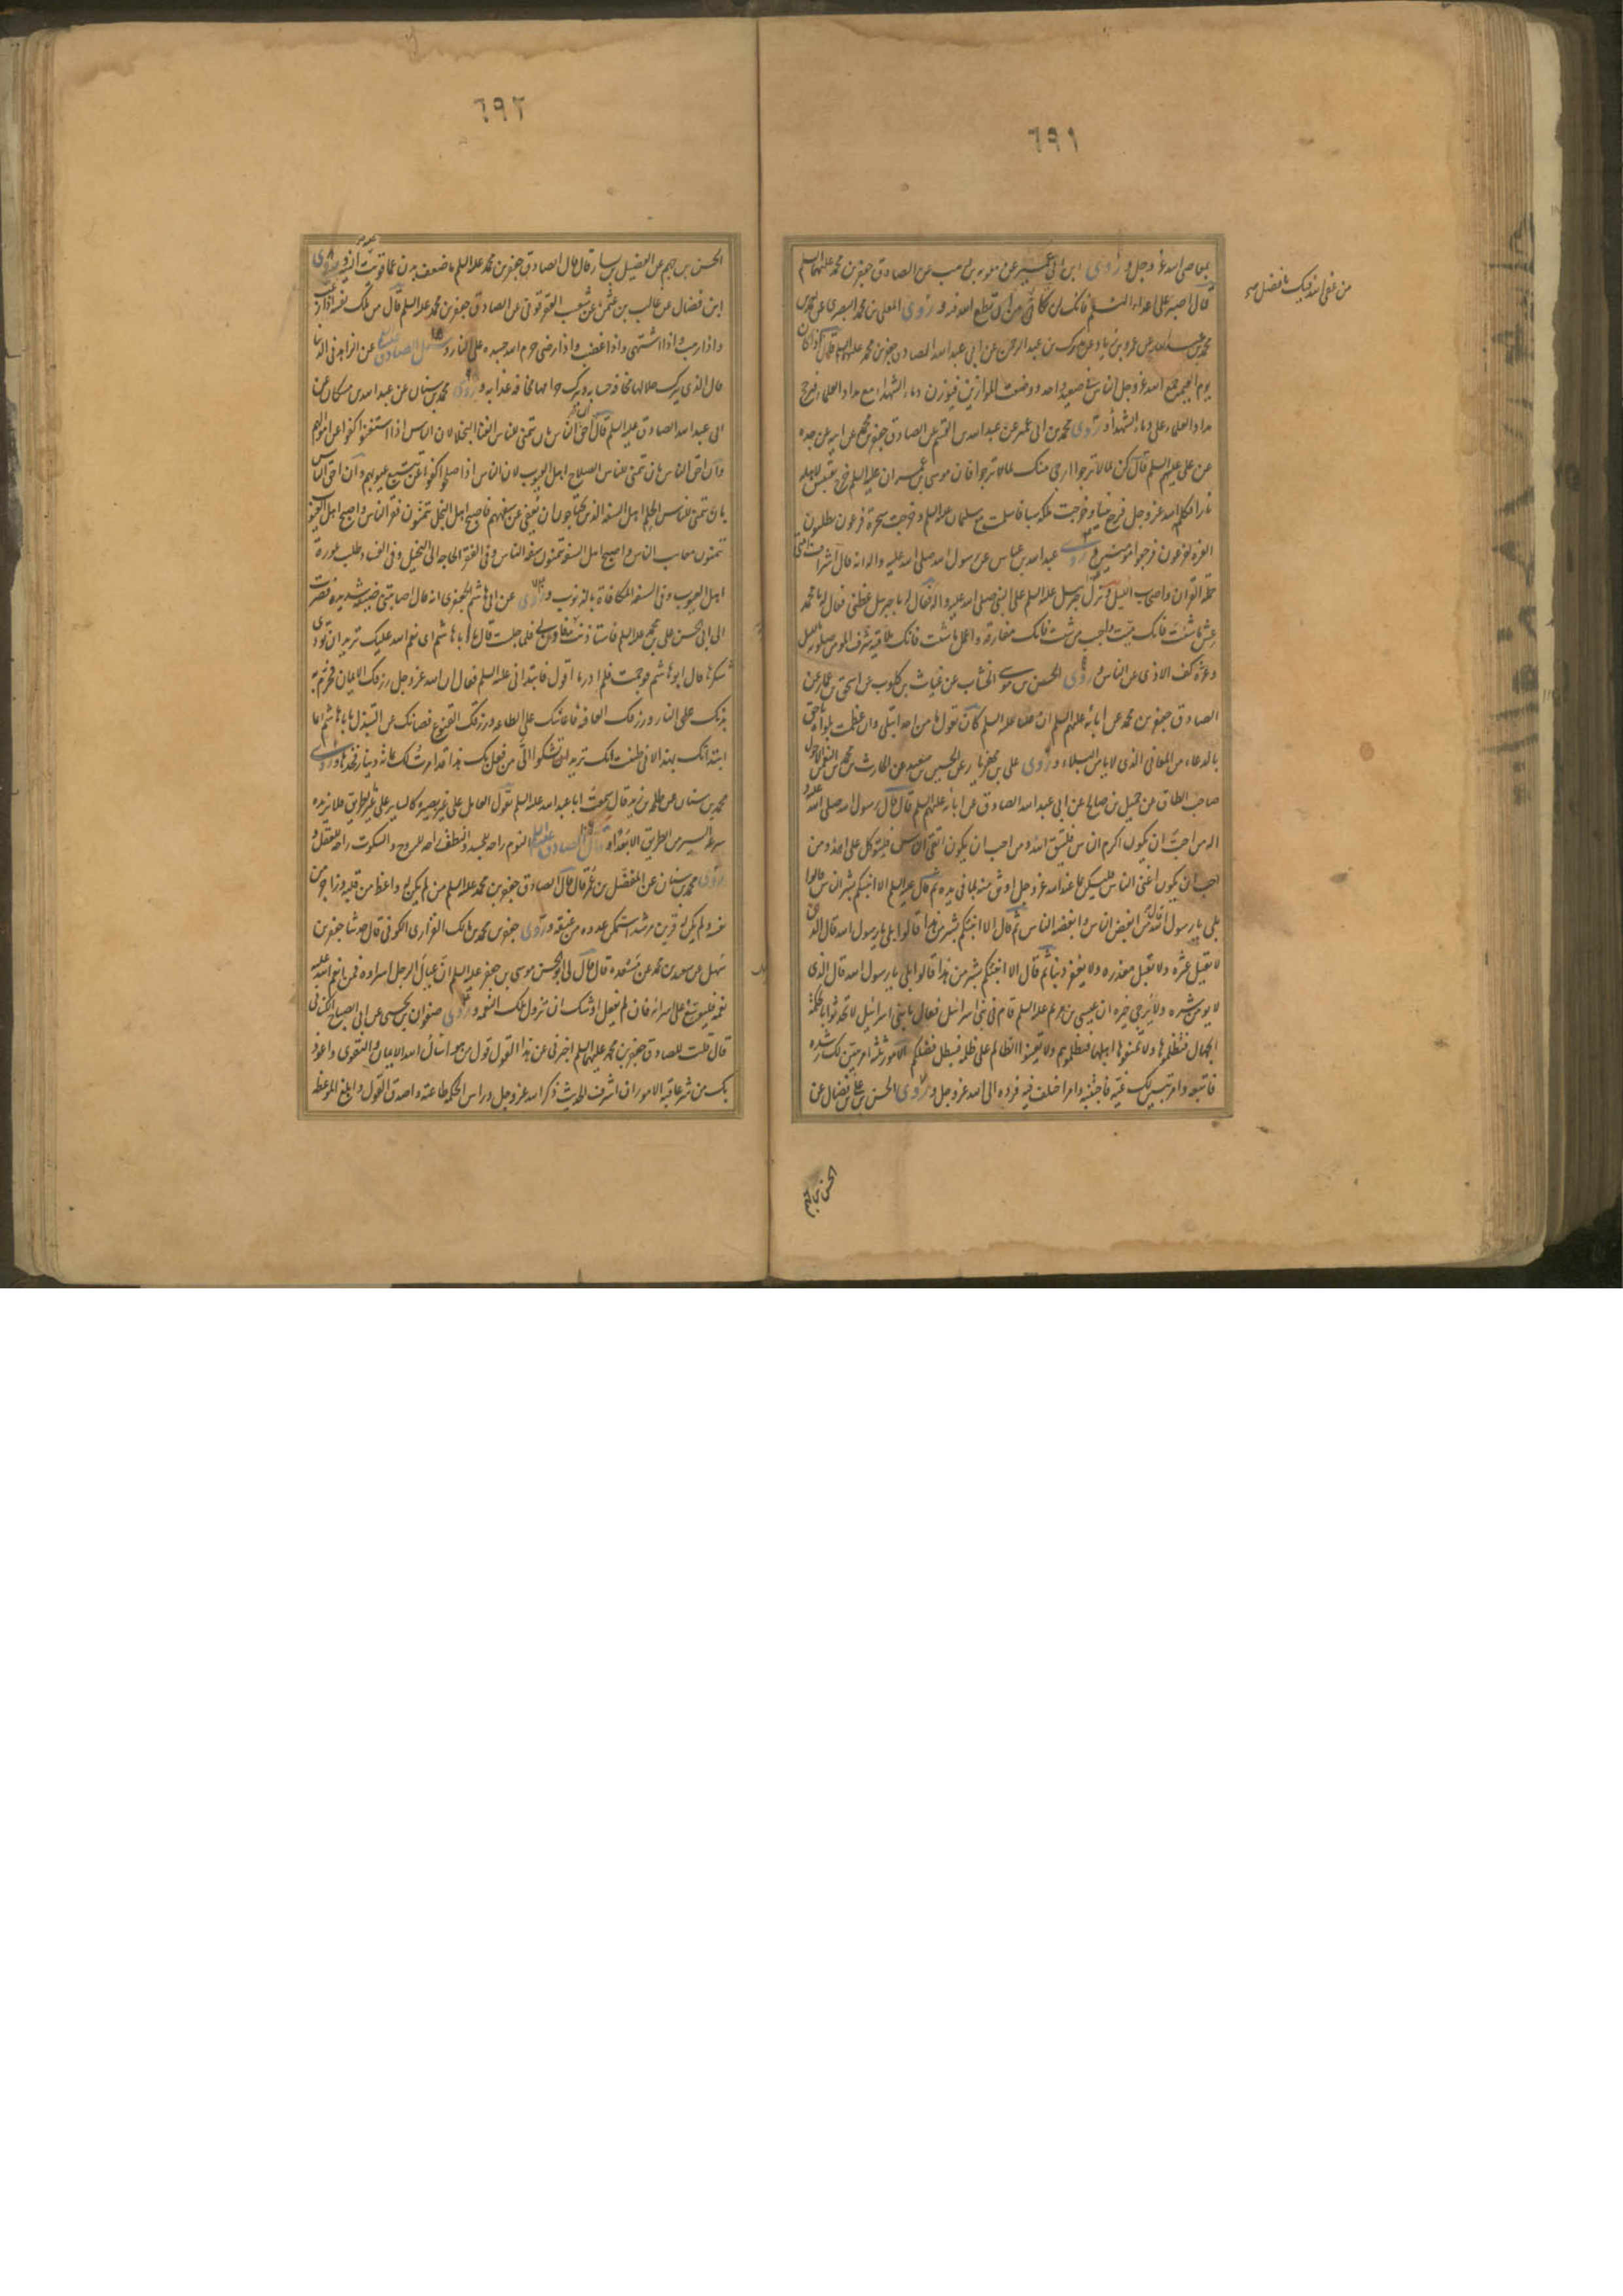 ٦٩١
بمعاصى الله عز وجل و روى ابن ابى عمير عن معوية بن وهب عن الصادق جعفر بن محمد عليهما السلم
قال اصبر على اعداء النعم فانك لن تكافى من عصى الله فيك بافضل من ان تطيع الله فيه و روى المعلى بن محمد البصرى عن احمد بن
من عصى الله فيك بافضل صح
محمد بن عبد الله عن عمرو بن زياد عن مدرك بن عبد الرحمن عن ابى عبد الله الصادق جعفر بن محمد عليهما السلم قال اذا كان
يوم القيمة جمع الله عز وجل الناس فى صعيد واحد ووضعت الموازين فيوزن دماء الشهداء مع مداد العلماء فيرجح
مداد العلماء على دماء الشهداء و روى محمد بن ابى عمير عن عبد الله بن القسم عن الصادق جعفر بن محمد عن ابيه عن جده
عن على عليهم السلم قال كن لما لا ترجوا ارجى منك لما ترجوا فان موسى بن عمران عليه السلم خرج يقتبس لاهله
نارا فكلمه الله عز وجل فرجع نبيا وخرجت ملكة سبا فاسلمت مع سليمان عليه السلم وخرجت سحرة فرعون يطلبون
العزة لفرعون فرجعوا مؤمنين و روى عبد الله بن عباس عن رسول الله صلى الله عليه واله انه قال اشراف امتى
حملة القران واصحاب الليل و نزل جبرئيل عليه السلم على النبى صلى الله عليه واله فقال له يا جبرئيل عظنى فقال له يا محمد
عش ما شئت فانك ميت واحبب من شئت فانك مفارقه واعمل ما شئت فانك ملاقيه شرف المؤمن صلوته بالليل
وعزه كف الاذى عن الناس و روى الحسن بن موسى الخشاب عن غياث بن كلوب عن اسحق بن عمار عن
الصادق جعفر بن محمد عن ابائه عليهم السلم ان عليا عليه السلم كان يقول ما من احد ابتلى وان عظمت بلواه باحق
بالدعاء من المعافى الذى لا يامن البلاء و روى على بن مهزيار عن الحسين بن سعيد عن الحارث بن محمد بن النعمان الاحول
صاحب الطاق عن جميل بن صالح عن ابى عبد الله الصادق عن ابائه عليهم السلم قال قال رسول الله صلى الله عليه و
اله من احب ان يكون اكرم الناس فليتق الله ومن احب ان يكون اتقى الناس فليتوكل على الله ومن
احب ان يكون اغنى الناس فليكن بما عند الله عز وجل اوثق منه بما فى يده ثم قال عليه السلم الا انبئكم بشر الناس قالوا
بلى يا رسول الله قال من ابغض الناس وابغضه الناس ثم قال الا انبئكم بشر من هذا قالوا بلى يا رسول الله قال الذى
لا يقيل عثرة ولا يقبل معذرة ولا يغفر ذنبا ثم قال الا انبئكم بشر من هذا قالوا بلى يا رسول الله قال الذى
لا يومن شره ولا يرجى خيره ان عيسى بن مريم عليه السلم قام فى بنى اسرائيل فقال يا بنى اسرائيل لا تحدثوا بالحكمة
الجهال فتظلموها ولا تمنعوها اهلها فتظلموهم ولا تعينوا الظالم على ظلمه فيبطل فضلكم الامور ثلثة امر تبين لك رشده
فاتبعه وامر تبين لك غيه فاجتنبه وامر اختلف فيه فرده الى الله عز وجل و روى الحسن بن على بن فضال عن
الحسن بن الجهم
٦٩٢
الحسن بن جهم عن الفضيل بن يسار قال قال الصادق جعفر بن محمد عليه السلم ما ضعف بدن عما قويت عليه النية و روى
ابن فضال عن غالب بن عثمن عن شعيب العقرقوفى عن الصادق جعفر بن محمد عليه السلم قال من ملك نفسه اذا رغب
واذا رهب واذا اشتهى واذا غضب واذا رضى حرم الله جسده على النار و سئل الصادق عليه السلم عن الزاهد فى الدنيا
قال الذى يترك حلالها مخافة حسابه ويترك حرامها مخافة عذابه و روى محمد بن سنان عن عبد الله بن مسكان عن
ابى عبد الله الصادق عليه السلم قال ان احق الناس بان يتمنى للناس الغنا البخلاء لان الناس اذا استغنوا كفوا عن اموالهم
وان احق الناس بان يتمنى للناس الصلاح اهل العيوب لان الناس اذا صلحوا كفوا عن تتبع عيوبهم وان احق الناس
بان يتمنى للناس الحلم اهل السفه الذين يحتاجون ان يعفى عن سفههم فاصبح اهل البخل يتمنون فقر الناس واصبح اهل العيوب
يتمنون معايب الناس واصبح اهل السفه يتمنون سفه الناس وفى الفقر الحاجة الى البخيل وفى الفساد طلب عورة
اهل العيوب وفى السفه المكافاة بالذنوب و روى عن ابى هاشم الجعفرى انه قال اصابتنى ضيقة شديدة فصرت
الى ابى الحسن على بن محمد عليه السلم فاستاذنت عليه فاذن لى فلما جلست قال يا با هاشم اى نعم الله عليك تريد ان تؤدى
شكرها قال ابو هاشم فوجمت فلم ادر ما اقول فابتدانى عليه السلم فقال ان الله عز وجل رزقك الايمان فحرم به
بدنك على النار ورزقك العافية فاعانتك على الطاعة ورزقك القنوع فصانك عن التبذل يا با هاشم انما
ابتداتك بهذا لانى ظننت انك تريد ان تشكوا الى من فعل بك هذا قد امرت لك بمائة دينار فخذها و روى
محمد بن سنان عن طلحة بن زيد قال سمعت ابا عبد الله عليه السلم يقول العامل على غير بصيرة كالسائر على غير الطريق فلا يزيده
سرعة السير من الطريق الا بعدا و قال الصادق عليه السلم النوم راحة للجسد والنطق راحة للروح والسكوت راحة للعقل و
روى محمد بن سنان عن المفضل بن عمر قال قال الصادق جعفر بن محمد عليه السلم من لم يكن له واعظ من قلبه وزاجر من
نفسه ولم يكن له قرين مرشد استمكن عدوه من عنقه و روى جعفر بن محمد بن مالك الفزارى الكوفى قال حدثنا جعفر بن
سهل عن سعيد بن محمد عن مسعدة قال قال لى ابو الحسن موسى بن جعفر عليه السلم ان عيال الرجل اسراؤه فمن انعم الله عليه
نعمة فليوسع على اسرائه فان لم يفعل اوشك ان تزول تلك النعمة و روى صفوان بن يحيى عن ابى الصباح الكنانى
قال قلت للصادق جعفر بن محمد عليهما السلم اخبرنى عن هذا القول قول من هو اسأل الله الايمان والتقوى واعوذ
بك من شر عاقبة الامور ان اشرف الحديث ذكر الله عز وجل وراس الحكمة طاعته واصدق القول وابلغ الموعظة